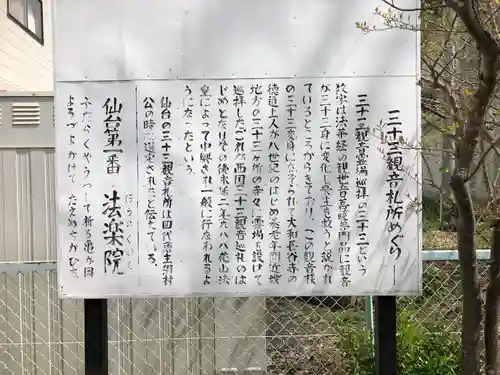 三十三観音札所めぐり
三十三観音霊場巡拝の三十三という
数字は法華経の観世音菩薩普門品に観音
が三十三身に変化し衆生を救うと説かれ
ているところからきており、この観音様
の三十三変身になぞらえて大和長谷寺の
徳道上人が八世紀のはじめ養老年間近畿
地方の三十三ヶ所の寺々に霊場を設けて
巡拝したのがこれが西国三十三観音巡礼のは
じめとなりその後永延二年九八八花山法
皇によって中興され一般に行なわれるよ
うになったという。
仙台の三十三観音札所は四代藩主綱村
公の時に選定されたと伝えている。
仙台第一番 法楽院
ほうらくいん
ふだらくやうつして祈る亀が岡
よろづよかけてたえぬちかひぢ